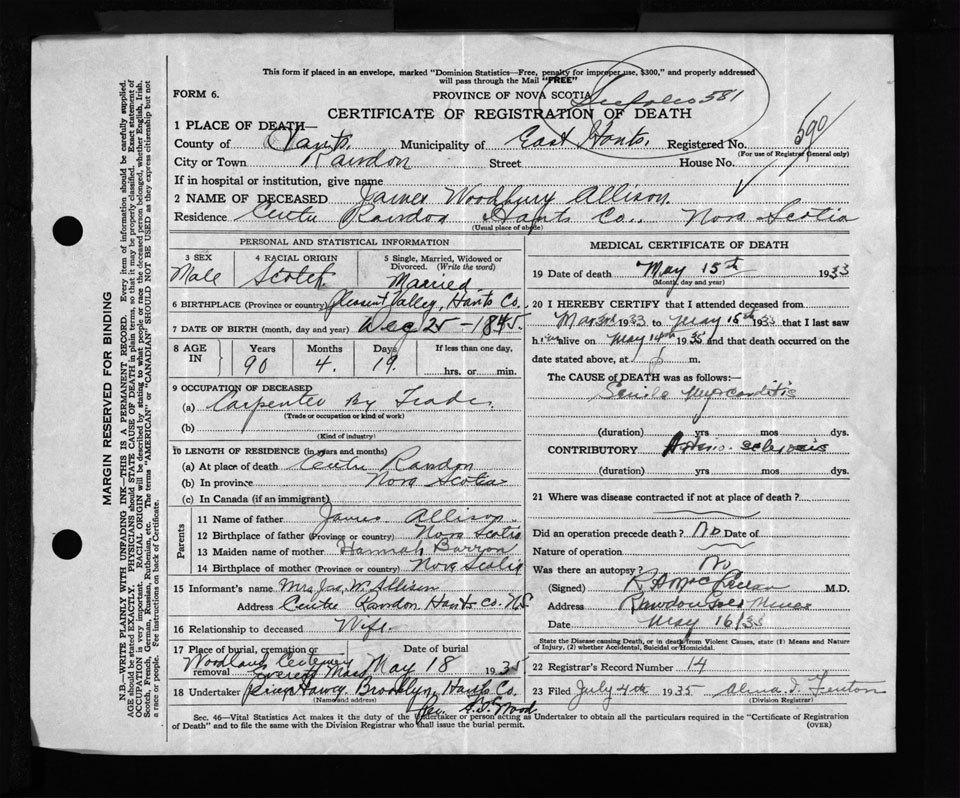 This form if placed in an envelope, marked "Dominion Statistics—Free, penalty for improper use, $300," and properly addressed
will pass through the Mail "FREE"
FORM 6.
PROVINCE OF NOVA SCOTIA
581
CERTIFICATE OF REGISTRATION OF DEATH
590
1 PLACE OF DEATH—
County of Hants. Municipality of East Hants. Registered No.
(For use of Registrar General only)
City or Town Rawdon Street House No.
If in hospital or institution, give name
2 NAME OF DECEASED James Woodbury Allison
Residence Centre Rawdon Hants Co. Nova Scotia
(Usual place of abode)
PERSONAL AND STATISTICAL INFORMATION
3 SEX 4 RACIAL ORIGIN 5 Single, Married, Widowed or Divorced. (Write the word)
Male Scotch Married
6 BIRTHPLACE (Province or country) Pleasant Valley, Hants Co.
7 DATE OF BIRTH (month, day and year) Dec 25 - 1845.
8 AGE IN Years Months Days If less than one day,
90 4. 19. hrs. or min.
9 OCCUPATION OF DECEASED
(a) Carpenter By Trade.
(Trade or occupation or kind of work)
(b)
(Kind of industry)
10 LENGTH OF RESIDENCE (in years and months)
(a) At place of death Centre Rawdon
(b) In province Nova Scotia
(c) In Canada (if an immigrant)
Parents
11 Name of father James Allison
12 Birthplace of father (Province or country) Nova Scotia
13 Maiden name of mother Hannah Barron
14 Birthplace of mother (Province or country) Nova Scotia
15 Informant's name Mrs Jas. W. Allison
Address Centre Rawdon Hants Co. N.S
16 Relationship to deceased Wife.
17 Place of burial, cremation or removal Date of burial
Woodlawn Cemetery Everett Mass May 18 1935
18 Undertaker Haney Brooklyn, Hants Co.
(Name and address)
Wood
MEDICAL CERTIFICATE OF DEATH
19 Date of death May 15th 1933
(Month, day and year)
20 I HEREBY CERTIFY that I attended deceased from
1933 to May 16th 1933 that I last saw
him alive on May 14th 1935 and that death occurred on the
date stated above, at m.
The CAUSE of DEATH was as follows:—
Senile Myocarditis
(duration) yrs mos dys.
CONTRIBUTORY Arterio-sclerosis
(duration) yrs mos dys.
21 Where was disease contracted if not at place of death?
Did an operation precede death? No Date of
Nature of operation
Was there an autopsy? No
(Signed) M.D.
Address Rawdon Gold Mines
Date May 16/35
State the Disease causing Death, or in death from Violent Causes, state (1) Means and Nature
of Injury, (2) whether Accidental, Suicidal or Homicidal.
22 Registrar's Record Number 14
23 Filed July 4th 1935 Alma I. Fenton
(Division Registrar)
Sec. 46—Vital Statistics Act makes it the duty of the undertaker or person acting as Undertaker to obtain all the particulars required in the "Certificate of Registration
of Death" and to file the same with the Division Registrar who shall issue the burial permit.
(OVER)
MARGIN RESERVED FOR BINDING
N.B.—WRITE PLAINLY WITH UNFADING INK—THIS IS A PERMANENT RECORD. Every item of information should be carefully supplied.
AGE should be stated EXACTLY. PHYSICIANS should STATE CAUSE OF DEATH in plain terms, so that it may be properly classified. Exact statement of
OCCUPATION is very important. RACIAL ORIGIN will be described by stating to what people or race the deceased person belonged, whether English, Irish,
Scotch, French, German, Russian, Ruthenian, etc. The terms "AMERICAN" or "CANADIAN" SHOULD NOT BE USED as they express citizenship but not
a race or people. See instructions on back of Certificate.